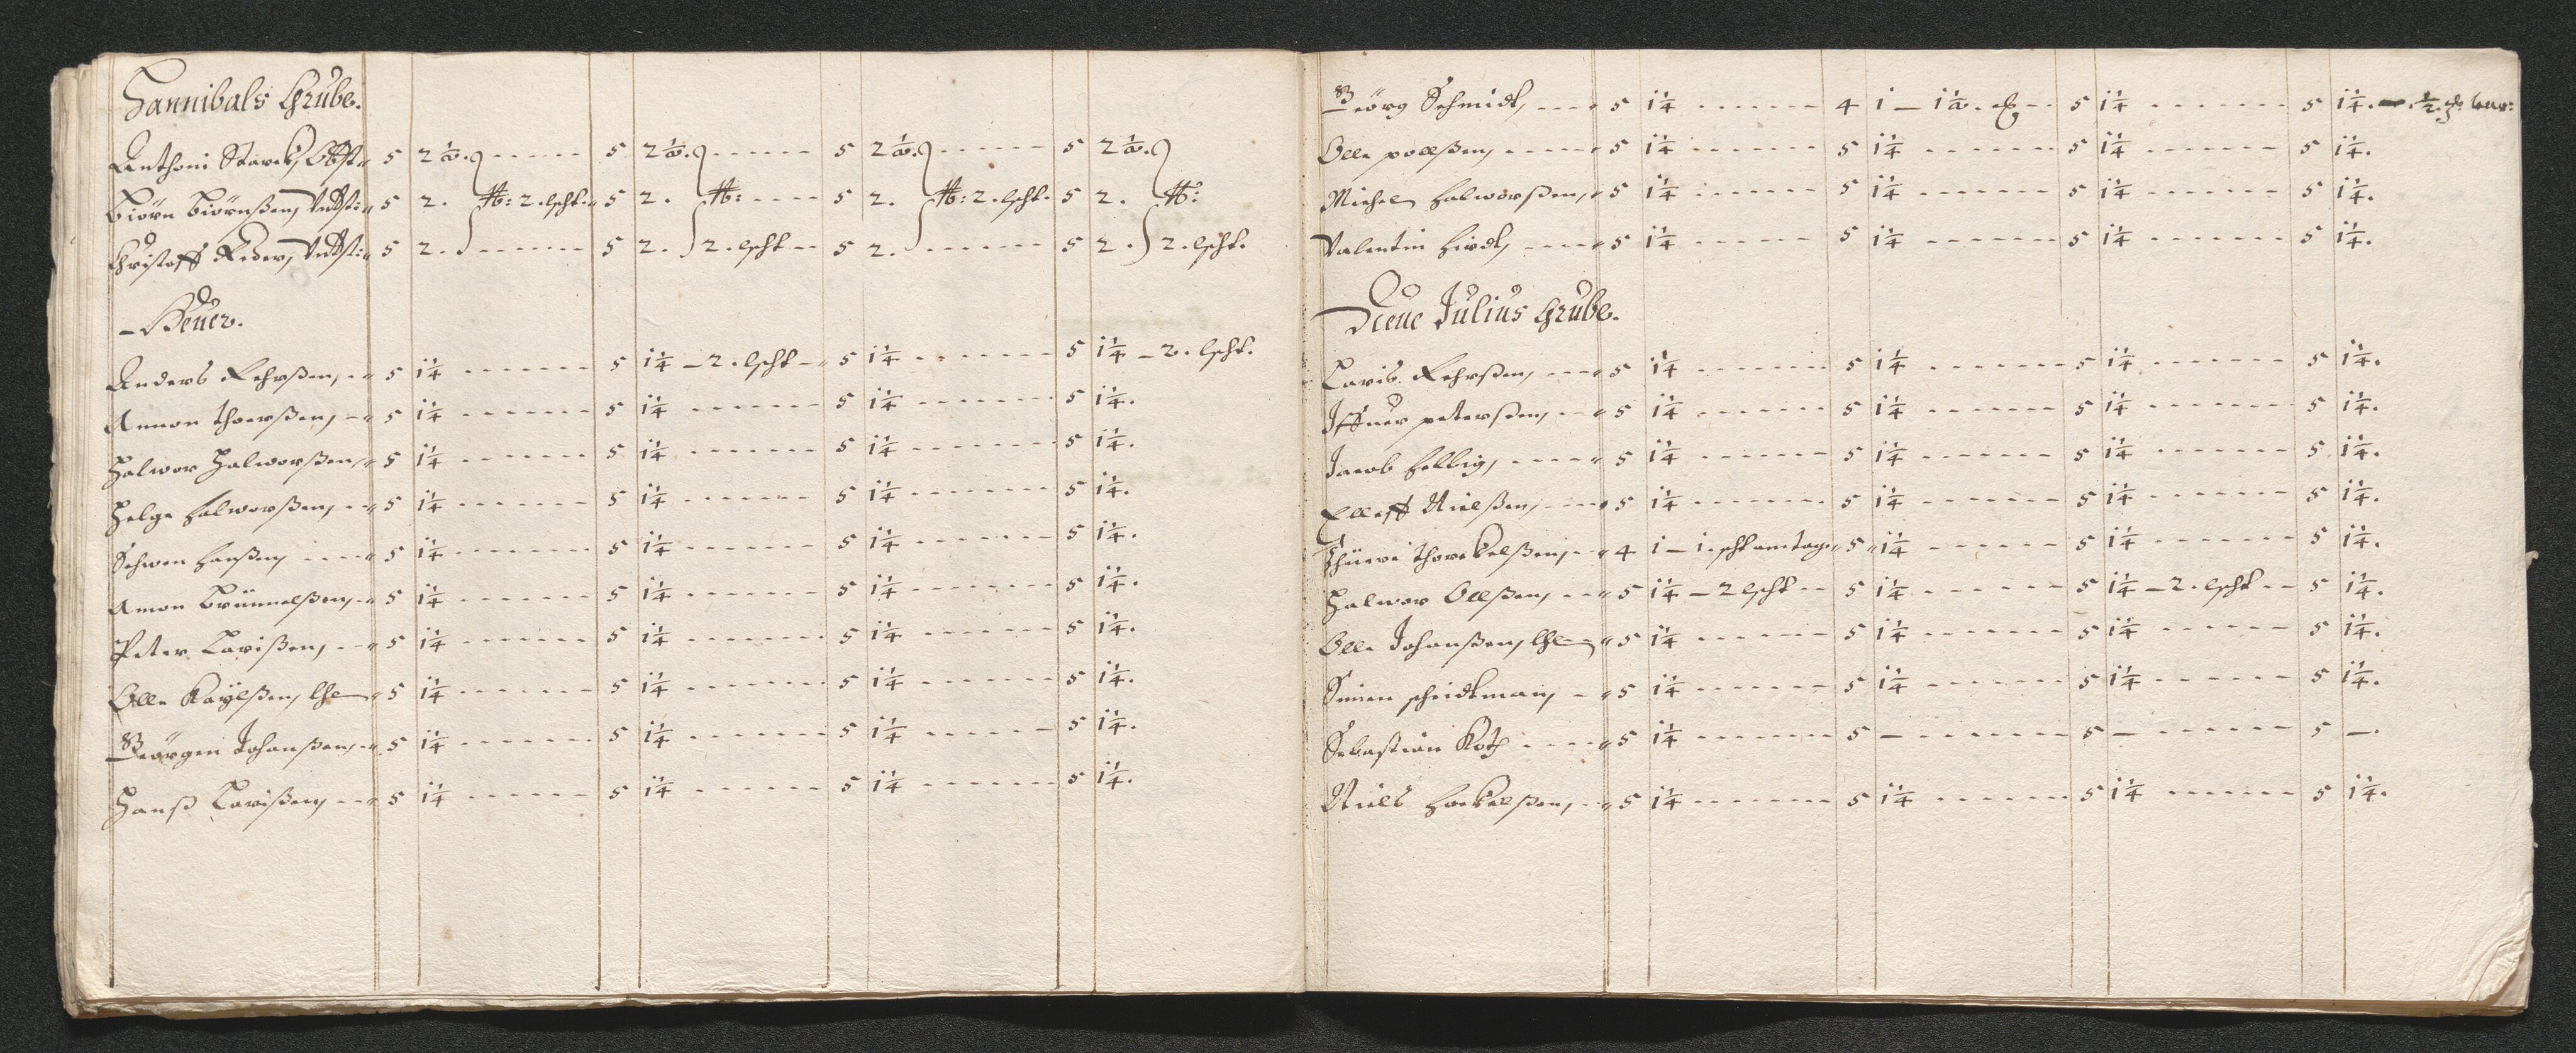 Hannibals Grube.
Anthoni Starck, Obst: 5 2½. 5 2½. 5 2½. 5 2½.
Biörn Biörnßen, Vndtst: 5 2. 2. lscht. 5 2. 5 2. 2. lscht. 5 2.
Christoff Reder, Vndtst: 5 2. 5 2. 2. lscht 5 2. 5 2. 2. lscht.
Heuer.
Anders Rehrßen, 5 1¼ 5 1¼ - 2. lscht - 5 1¼ 5 1¼ - 2. lscht.
Amon Thoerßen, 5 1¼ 5 1¼ 5 1¼ 5 1¼.
Halwor Halworßen, 5 1¼ 5 1¼ 5 1¼ 5 1¼.
Helge Halworßen, 5 1¼ 5 1¼ 5 1¼ 5 1¼.
Schwen Hanßen 5 1¼ 5 1¼ 5 1¼ 5 1¼.
Amon Brünnelßen, 5 1¼ 5 1¼ 5 1¼ 5 1¼.
Peter Larißen, 5 1¼ 5 1¼ 5 1¼ 5 1¼.
Olle Kaÿlßen, 5 1¼ 5 1¼ 5 1¼ 5 1¼.
Geörgen Johanßen, 5 1¼ 5 1¼ 5 1¼ 5 1¼.
Hanß Larißen, 5 1¼ 5 1¼ 5 1¼ 5 1¼.
Geörg Schmidt, 5 1¼ 4 1 - 1½. 5 1¼ 5 1¼. ½.
Olle pollßen, 5 1¼ 5 1¼ 5 1¼ 5 1¼.
Michel Halworßen, 5 1¼ 5 1¼ 5 1¼ 5 1¼.
Valentin Hirdt, 5 1¼ 5 1¼ 5 1¼ 5 1¼.
Neue Julius Grube.
Laris Rehrßen, 5 1¼ 5 1¼ 5 1¼ 5 1¼.
Iffuer peterßen, 5 1¼ 5 1¼ 5 1¼ 5 1¼.
Jacob Helbig, 5 1¼ 5 1¼ 5 1¼ 5 1¼.
Elleff Nielßen, 5 1¼ 5 1¼ 5 1¼ 5 1¼.
Thorckelßen, 4 1 - 1. scht am tag. 5 1¼ 5 1¼ 5 1¼.
Halwor Ollßen, 5 1¼ - 2 lscht 5 1¼ 5 1¼ - 2. lscht 5 1¼.
Olle Johanßen, 5 1¼ 5 1¼ 5 1¼ 5 1¼.
Simen scheidtman, 5 1¼ 5 1¼ 5 1¼ 5 1¼.
Sebastian Koch 5 1¼ 5 - 5 - 5 -.
Niels Hockelßen, 5 1¼ 5 1¼ 5 1¼ 5 1¼.